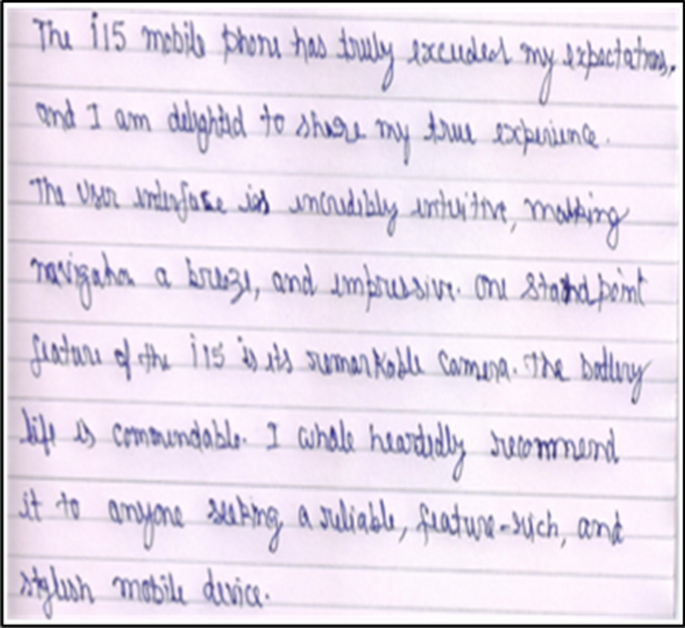 The i15 mobile phone has truly exceeded my expectations,
and I am delighted to share my true experience.
The user interface is incredibly intuitive, making
navigation a breeze, and impressive. One standpoint
feature of the i15 is its remarkable camera. The battery
life is commendable. I whole heartedly recommend
it to anyone seeking a reliable, feature-rich, and
stylish mobile device.